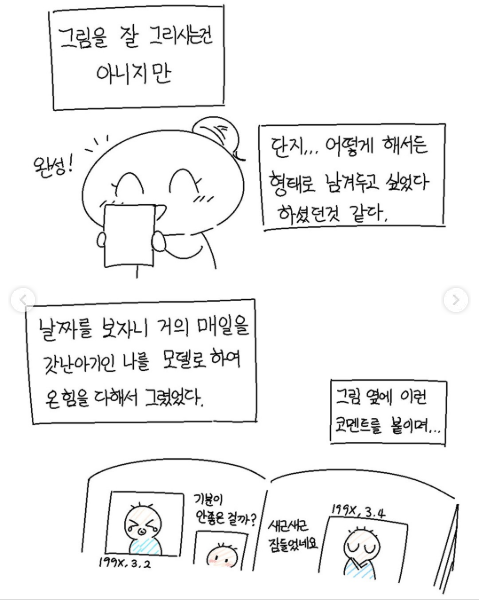 그림을 잘 그리시는건
아니지만
완성!
단지... 어떻게 해서든
형태로 남겨두고 싶었다
하셨던것 같다.
날짜를 보자니 거의 매일을
갓난아기인 나를 모델로 하여
온힘을 다해서 그렸었다.
그림 옆에 이런
코멘트를 붙이며...
기분이
안좋은 걸까?
199X, 3.2
199X, 3.4
새근새근
잠들었네요